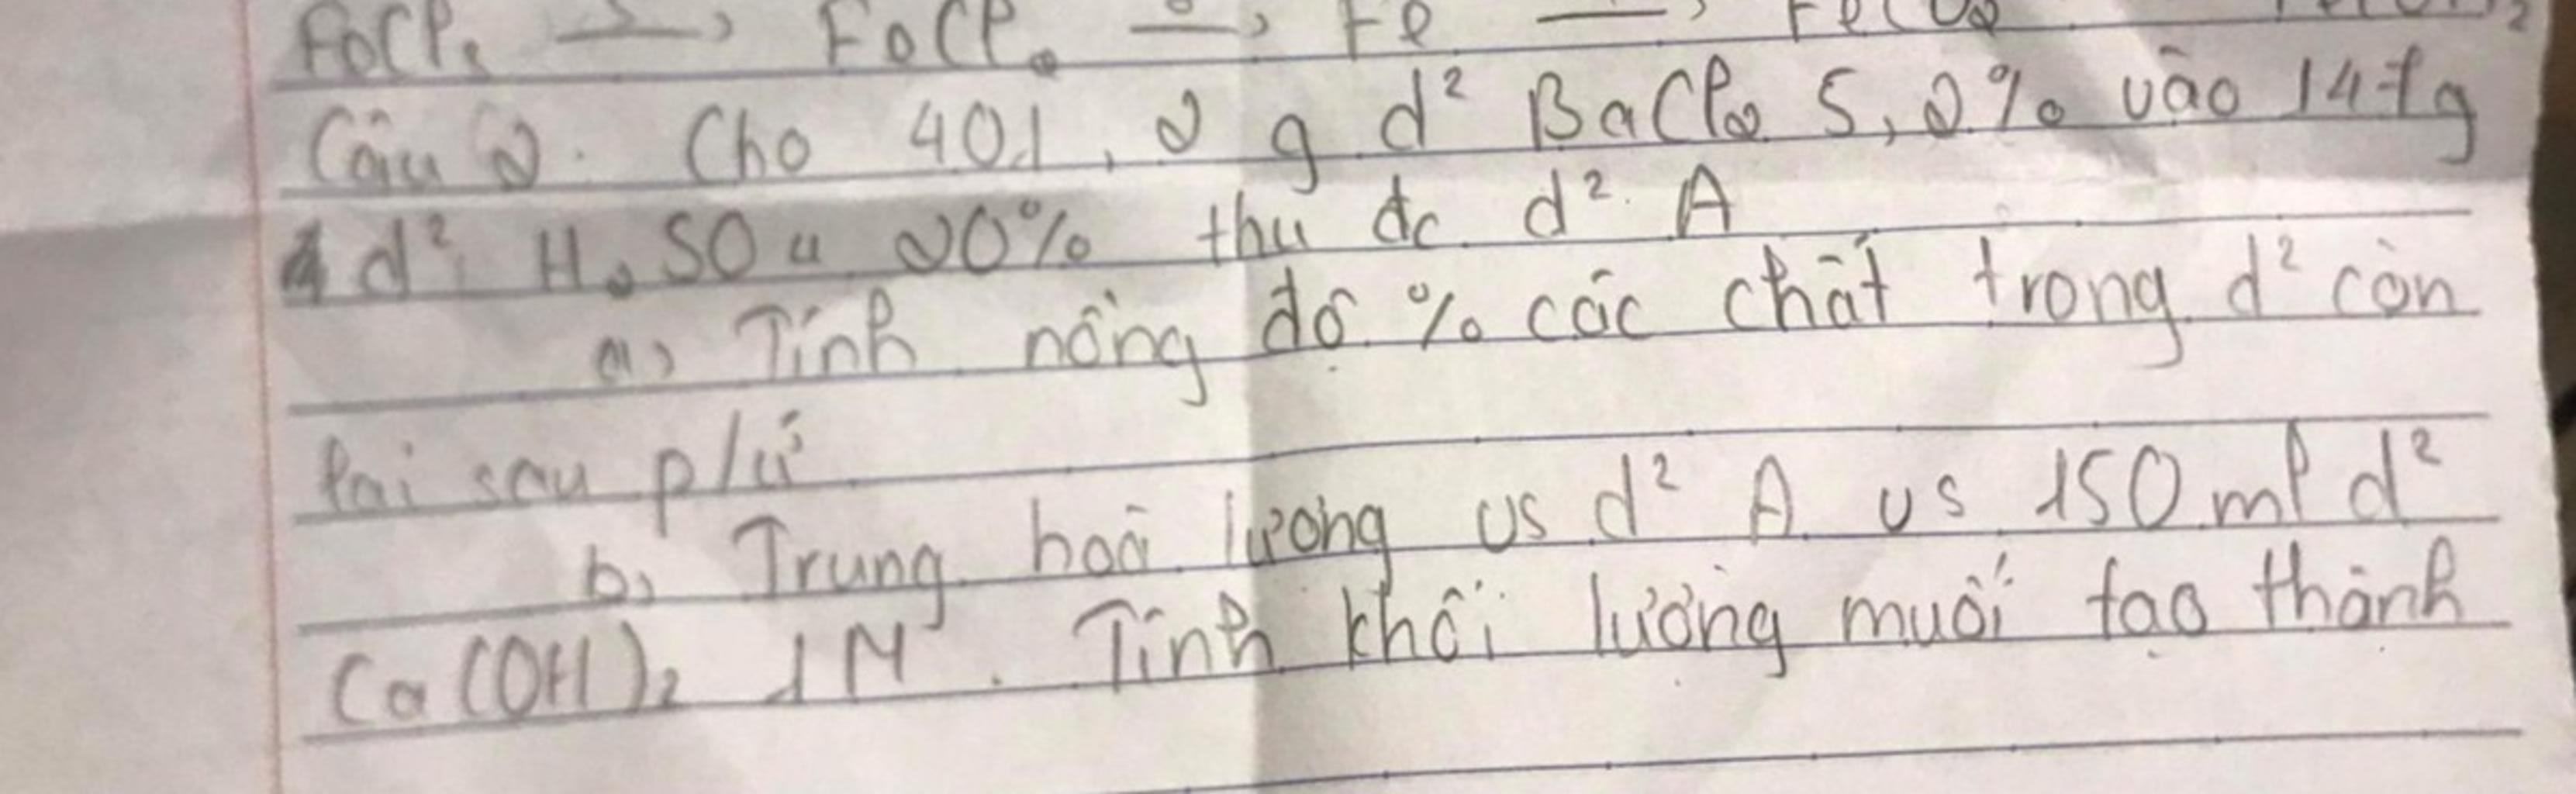 FeCl₂ → FeCl₂ → Fe → FeCl₂
Câu 2. Cho 401,2 g d² BaCl₂ 5,2% vào 147g
d² H₂SO₄ 20% thu đc d² A
a, Tính nồng độ % các chất trong d² còn
lại sau p/ứ
b, Trung hoà lượng us d² A us 150 ml d²
Ca(OH)₂ 1M. Tính khối lượng muối tạo thành